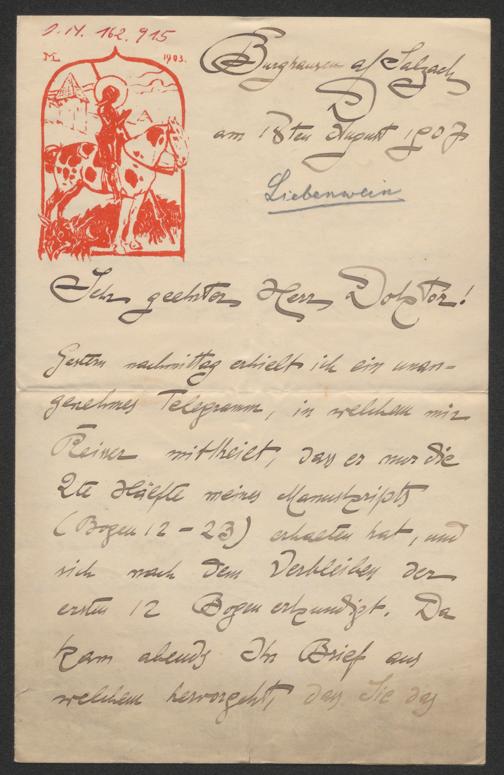 I.N. 162.915
ML 1903.
Burghausen a/ Salzach
am 18ten August 1907
Liebenwein
Sehr geehrter Herr Doktor!
Gestern nachmittag erhielt ich ein unan-
genehmes Telegramm, in welchem mir
mittheilt, dass er nur die
2te Hälfte meines Manuskripts
(Bogen 12 - 23) erhalten hat, und
sich nach dem Verbleiben der
ersten 12 Bogen erkundigt. Da
kam abends Ihr Brief aus
welchem hervorgeht, dass Sie das